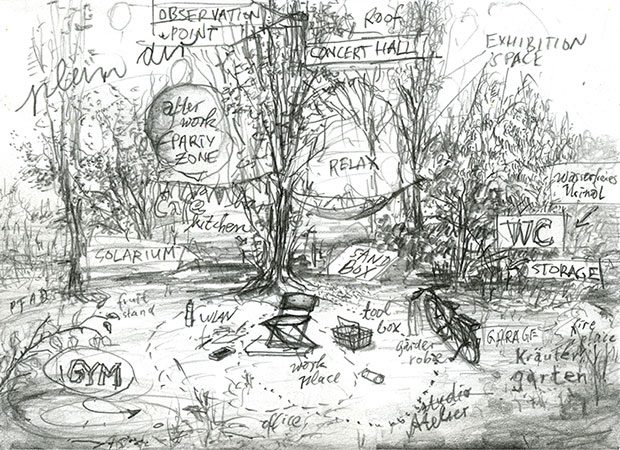 OBSERVATION
POINT
Roof
CONCERT HALL
EXHIBITION
SPACE
plein air
after
work
PARTY
ZONE
RELAX
kitchen
WC
STORAGE
SOLARIUM
SAND
BOX
PFAD
fruit
stand
WLAN
tool
box
garderobe
GARAGE
fire
place
Kräuter
garten
work
place
GYM
office
studio
Atelier